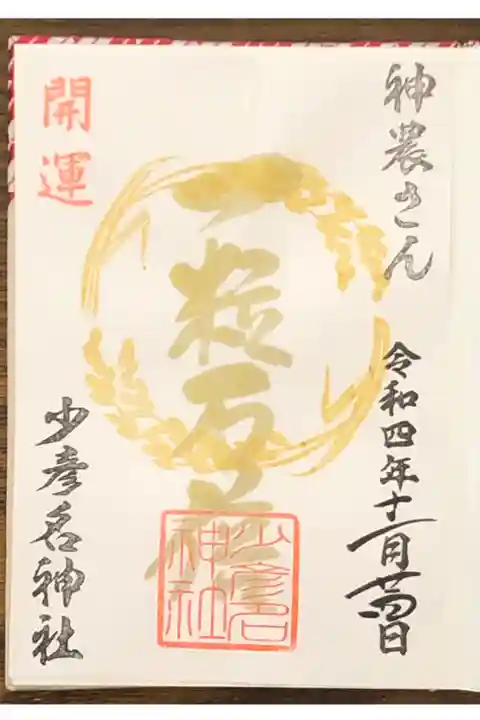 神農さん
令和四年十一月廿四日
一粒万倍
開運
少彦名神社
少彦名
神社